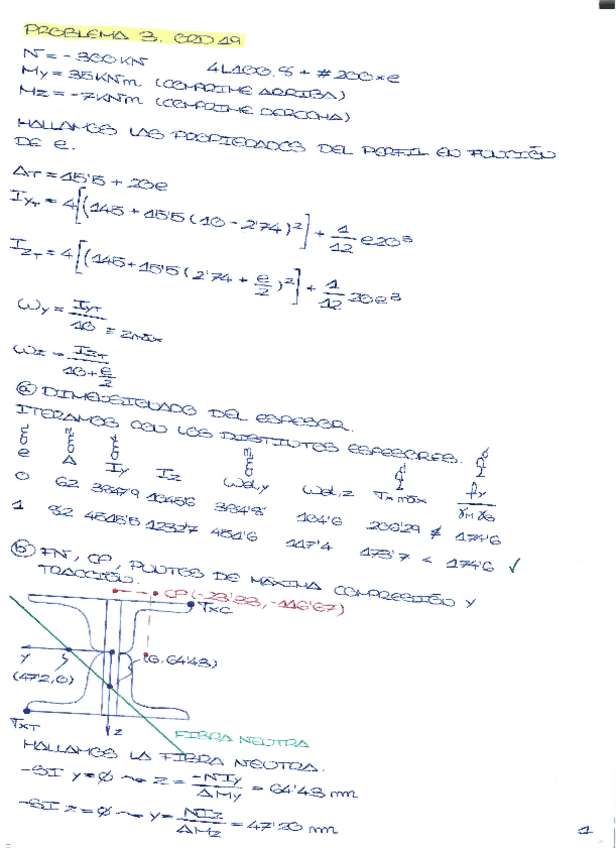 PROBLEMA 3. ORD 19
N = -300KN
4L100.8 + #200xe
My = 35KNm (COMPRIME ARRIBA)
Mz = -7KNm (COMPRIME DERECHA)
HALLAMOS LAS PROPIEDADES DEL PERFIL EN FUNCIÓN
DE e.
AT = 15'5 + 20e
IyT = 4[(145 + 15'5(10 - 2'74)²] + 1/12 e20³
IzT = 4[(145 + 15'5(2'74 + e/2)²] + 1/12 20e³
ωy = IyT/10 = zmáx
ωz = IzT/(10 + e/2)
ⓐ DIMENSIONADO DEL ESPESOR.
ITERAMOS CON LOS DISTINTOS ESPESORES.
e A Iy Iz ωel,y ωel,z σx máx fy/γM γs
0 62 3847'9 1045'6 384'8 104'6 206'29 ≮ 174'6
1 82 4515'5 1232'7 451'6 117'4 173'7 < 174'6 ✓
ⓑ FN, CP, PUNTOS DE MÁXIMA COMPRESIÓN Y
TRACCIÓN.
CP(-23'33, -116'67)
σxC
(0, 64'43)
y
(47'2, 0)
σxT
z
FIBRA NEUTRA
HALLAMOS LA FIBRA NEUTRA.
-SI y = ∅ ⤳ z = -NIy/AMy = 64'43 mm
-SI z = ∅ ⤳ y = NIz/AMz = 47'20 mm
1